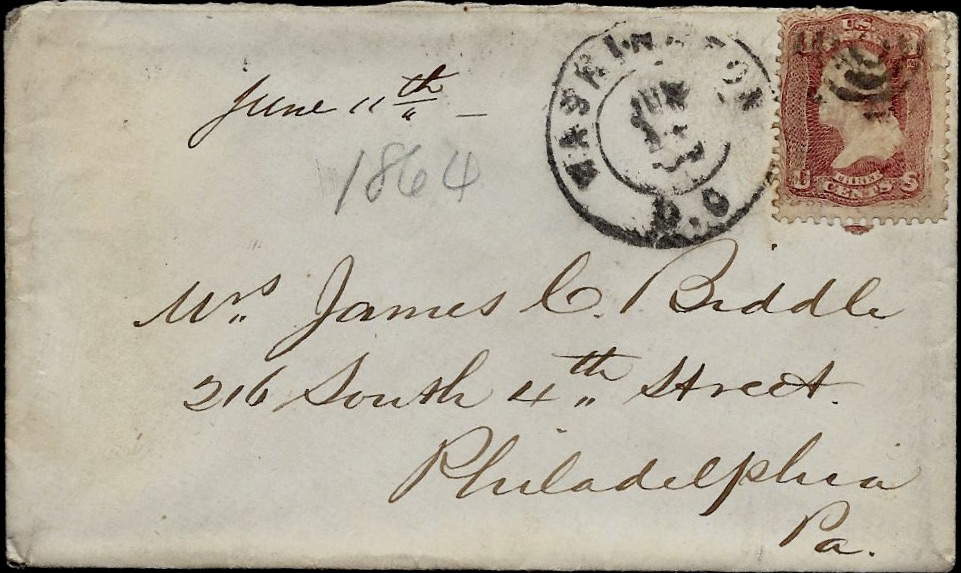 June 11th
1864
WASHINGTON
JUN
D.C
U.S.
THREE
CENTS
Mrs. James C. Biddle
216 South 4th Street.
Philadelphia
Pa.